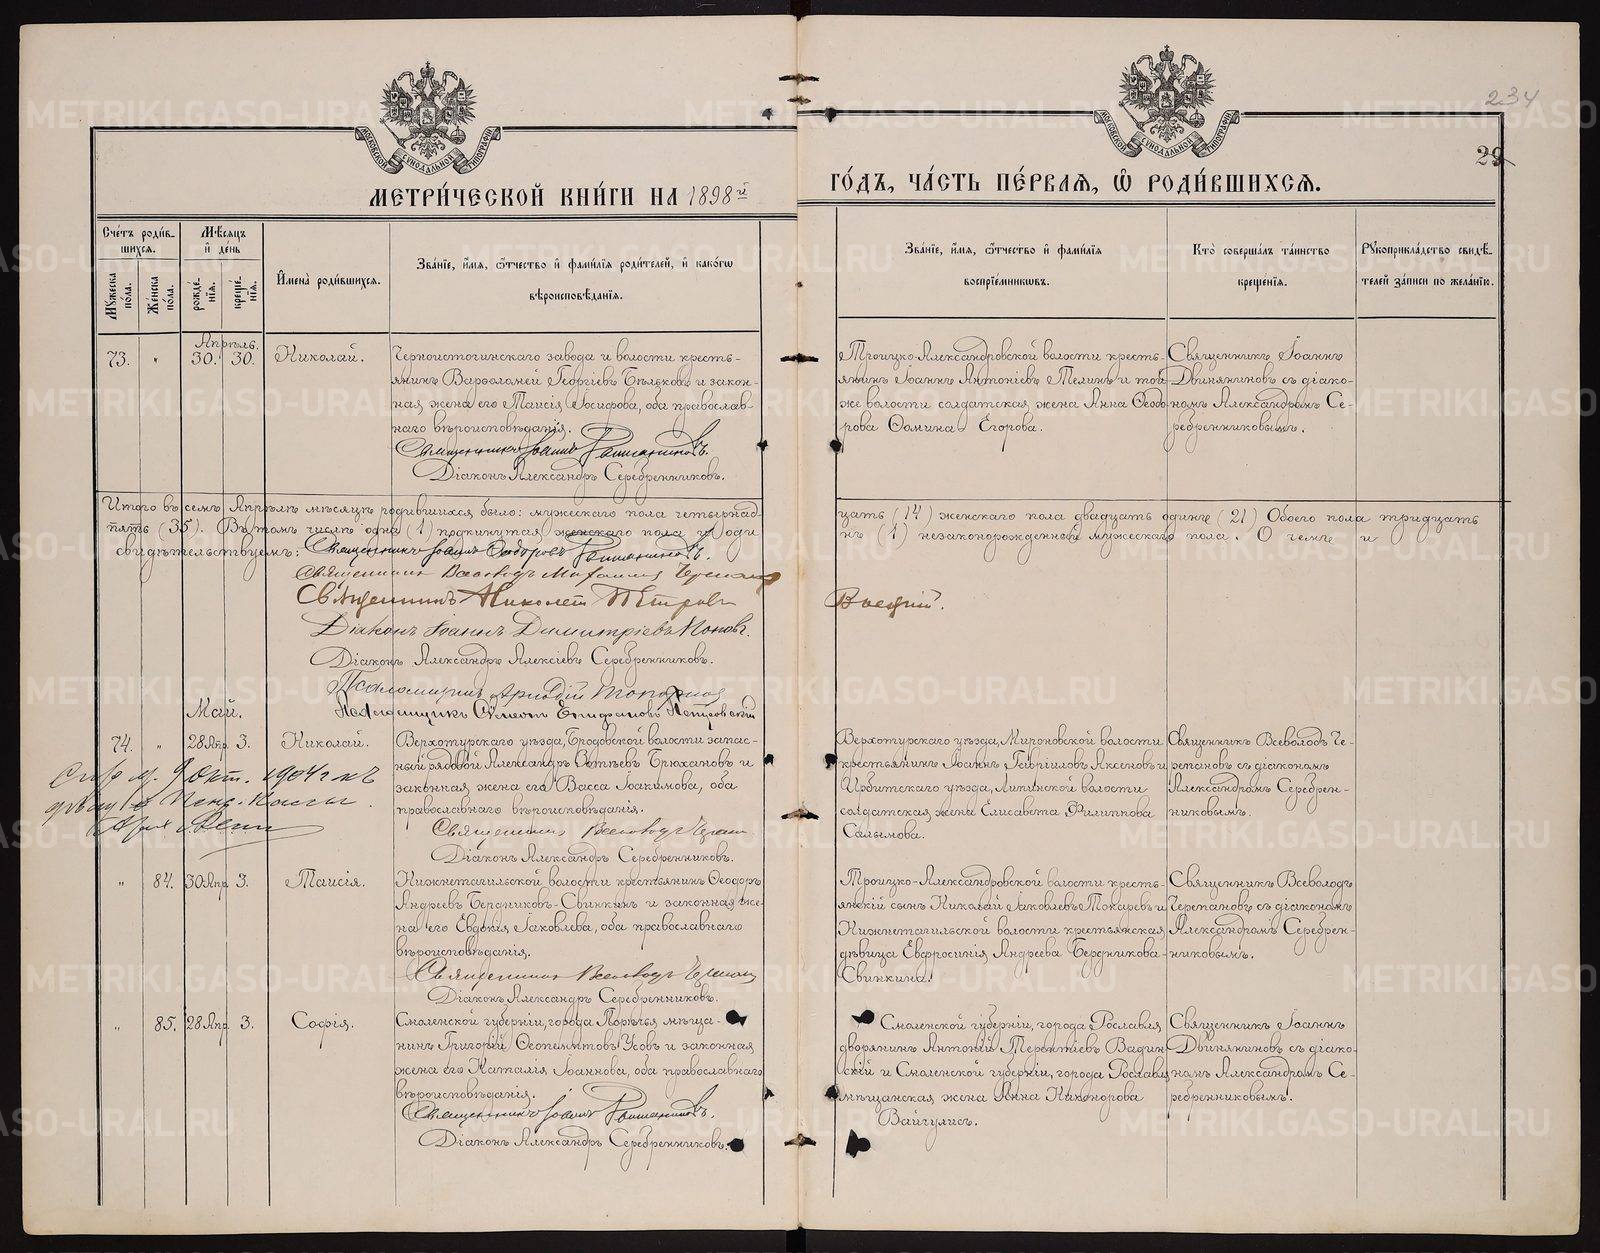 234
29
МОСКОВСКОЙ СѴНОДАЛЬНОЙ ТИПОГРАФІИ
МОСКОВСКОЙ СѴНОДАЛЬНОЙ ТИПОГРАФІИ
МЕТРИ́ЧЕСКОЙ КНИ́ГИ НА 1898й
ГО́ДЪ, ЧА́СТЬ ПЕ́РВАЯ, Ѽ РОДИ́ВШИХСЯ.
Сче́тъ роди́в-
шихся.
Му́жеска по́ла.
Же́нска по́ла.
Мѣ́сяцъ
и҆ де́нь
рожде́-
нїя.
креще́-
нїя.
И҆мена̀ роди́вшихся.
Зва́нїе, и҆́мя, ѻ҆́тчество и҆ фами́лїя роди́телей, и҆ како́гѡ
вѣроисповѣ́данїя.
Зва́нїе, и҆́мя, ѻ҆́тчество и҆ фами́лїя
воспрїе́мникѡвъ.
Кто̀ соверша́лъ та́инство
креще́нїя.
Рꙋкоприкла́дство свидѣ́-
телей за́писи по жела́нїю.
Апрѣль.
73. " 30. 30. Николай.
Черноистогинскаго завода и волости кресть-
янинъ Варѳоломей Георгіевъ Бѣльковъ и закон-
ная жена его Таисія Іосифова, оба православ-
наго вѣроисповѣданія.
Священникъ Іоаннъ
Діаконъ Александръ Серебренниковъ.
Троицко-Александровской волости кресть-
янинъ Іоаннъ Антоніевъ Телинъ и той
же волости солдатская жена Анна Ѳеодо-
рова Ѳомина Егорова.
Священникъ Іоаннъ
Двиняниновъ съ діако-
номъ Александромъ Се-
ребренниковымъ.
Итого въ семъ Апрѣлѣ мѣсяцѣ родившихся было: мужескаго пола четырнад-
цать (14) женскаго пола двадцать одинъ (21) Обоего пола тридцать
пять (35). Въ томъ числѣ одна (1) подкинутая женскаго пола и оди
нъ (1) незаконорожденный мужескаго пола. О чемъ и
свидѣтельствуемъ: Священникъ Іоаннъ Ѳеодоровъ
Священникъ Всеволодъ Михаиловъ
Священникъ Николай Петровъ
Діаконъ Іоаннъ Димитріевъ Поповъ.
Діаконъ Александръ Алексіевъ Серебренниковъ.
Псаломщикъ Аркадій
Псаломщикъ Симеонъ Епифановъ Петровскій
Май.
74. " 28 Апр. 3. Николай.
Верхотурскаго уѣзда, Бродовской волости запас-
ный рядовой Александръ Фотіевъ Брюхановъ и
законная жена его Васса Іоакимова, оба
православнаго вѣроисповѣданія.
Священникъ Всеволодъ
Діаконъ Александръ Серебренниковъ.
9 Окт. 1904 г
Верхотурскаго уѣзда, Мироновской волости
крестьянинъ Іоаннъ Гавріиловъ Аксеновъ и
Ирбитскаго уѣзда, Липинской волости
солдатская жена Елисавета Филиппова
Салымова.
Священникъ Всеволодъ Че-
репановъ съ діакономъ
Александромъ Серебрен-
никовымъ.
" 84. 30 Апр. 3. Таисія.
Нижнетагильской волости крестьянинъ Ѳеодоръ
Андреевъ Бердниковъ-Свинкинъ и законная же-
на его Евдокія Іаковлева, оба православнаго
вѣроисповѣданія.
Священникъ Всеволодъ
Діаконъ Александръ Серебренниковъ.
Троицко-Александровской волости кресть-
янскій сынъ Николай Іаковлевъ Токаревъ и
Нижнетагильской волости крестьянская
дѣвица Евфросинія Андреева Бердникова-
Свинкина.
Священникъ Всеволодъ
Черепановъ съ діакономъ
Александромъ Серебрен-
никовымъ.
" 85. 28 Апр. 3. Софія.
Смоленской губерніи, города Порѣчья мѣща-
нинъ Григорій Ѳеопемптовъ Усовъ и законная
жена его Наталія Іоаннова, оба православнаго
вѣроисповѣданія.
Священникъ Іоаннъ
Діаконъ Александръ Серебренниковъ.
Смоленской губерніи, города Рославля
дворянинъ Антоній Терентіевъ Вадин-
скій и Смоленской губерніи, города Рославля
мѣщанская жена Анна Никонорова
Вайчулисъ.
Священникъ Іоаннъ
Двиняниновъ съ діако-
номъ Александромъ Се-
ребренниковымъ.
METRIKI.GASO-URAL.RU